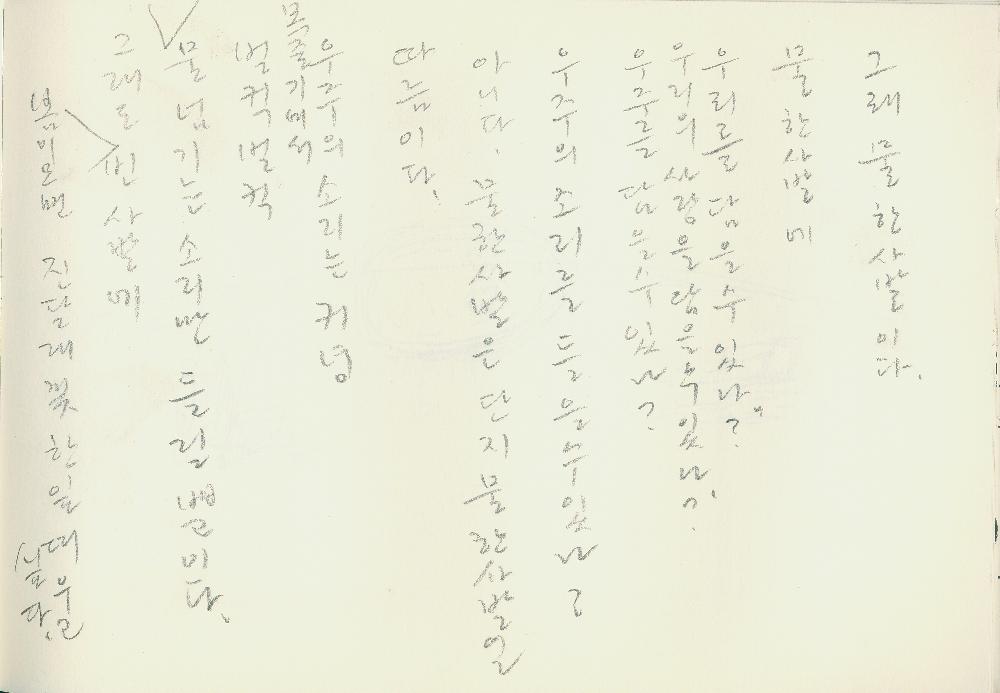 그래 물 한사발이다.
물 한사발에
우리를 담을수 있나?
우리의 사랑을 담을수 있나?
우주를 담을수 있나?
우주의 소리를 들을수 있나?
아니다. 물 한사발은 단지 물 한사발일
따름이다.
우주의 소리는 커녕
목줄기에서
벌컥벌컥
물 넘기는 소리만 들릴 뿐이다.
그래도 빈 사발에
봄이오면 진달래 꽃 한잎 띄우고
싶다.